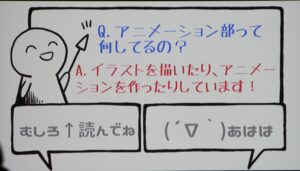 Q. アニメーション部って
何してるの？
A. イラストを描いたり、アニメー
ションを作ったりしています！
むしろ↑読んでね
(´∇｀)あはは